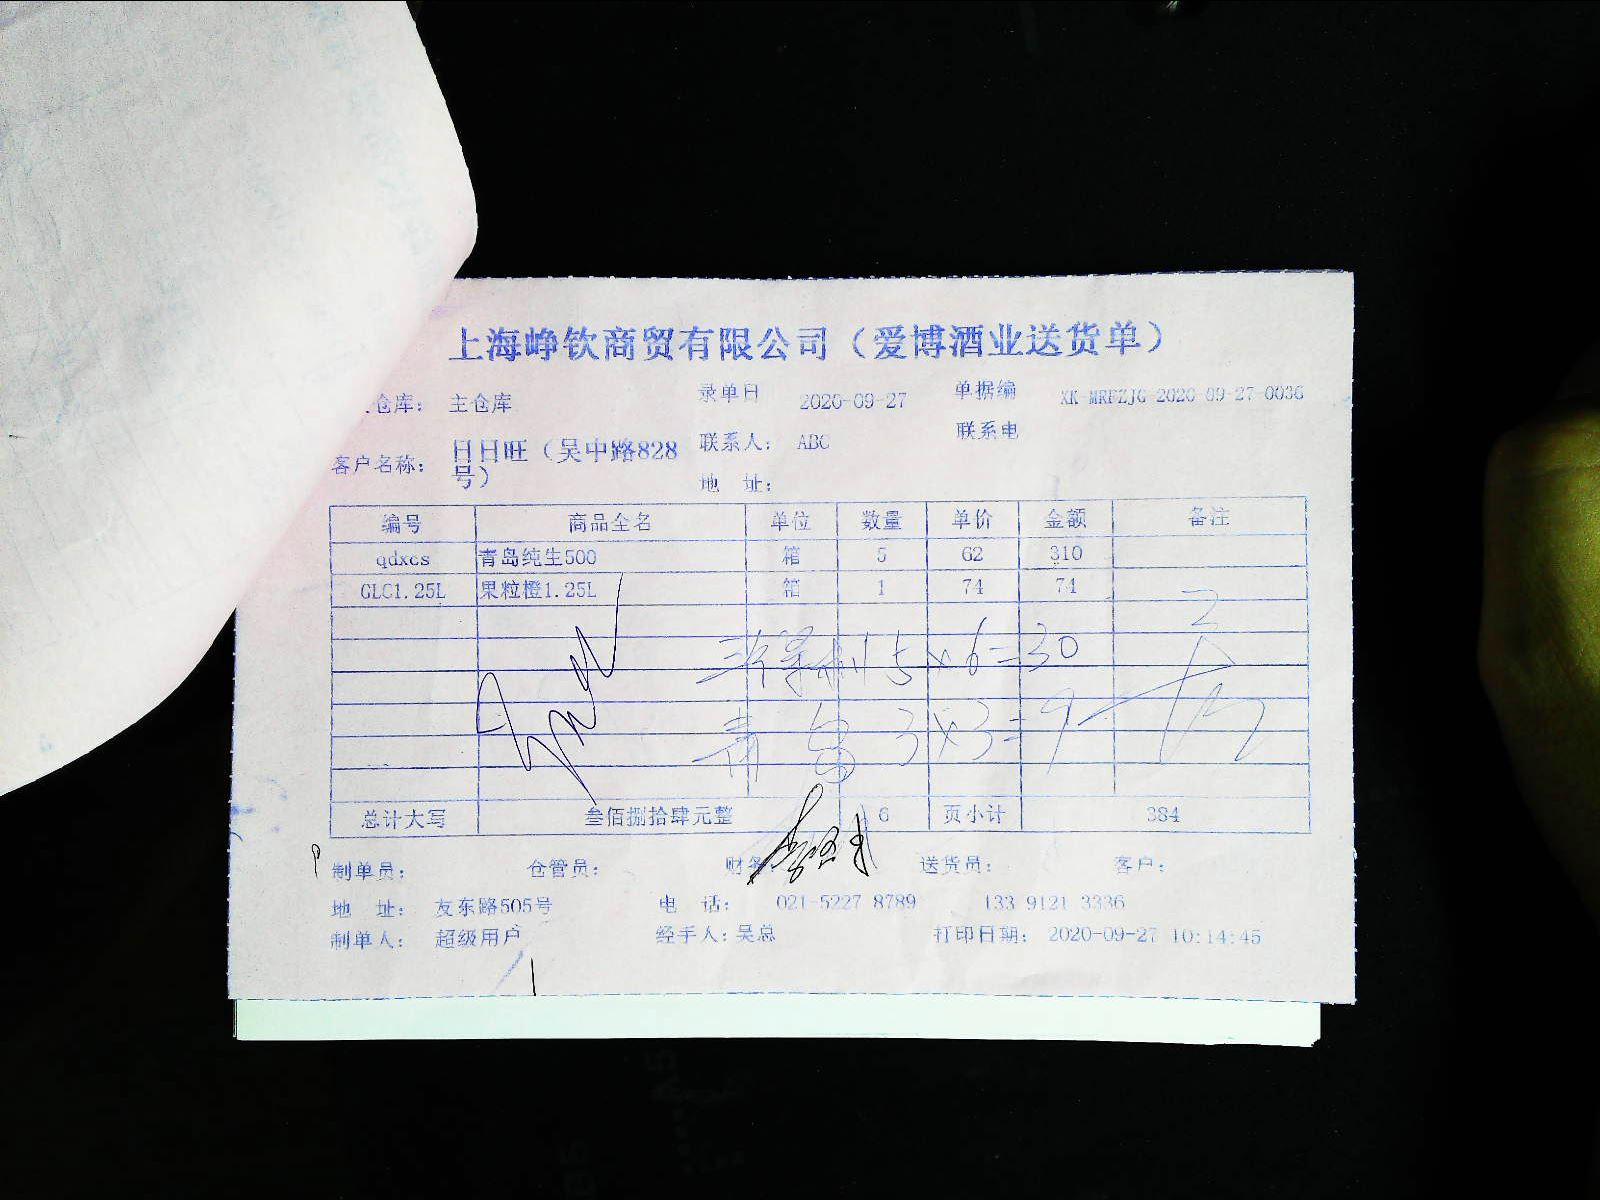 上海峥钦商贸有限公司（爱博酒业送货单）
仓库： 主仓库 录单日 2020-09-27 单据编 XK-MRFZJG-2020-09-27-0036
客户名称： 日日旺（吴中路828号） 联系人： ABC 联系电
地 址：
编号 商品全名 单位 数量 单价 金额 备注
qdxcs 青岛纯生500 箱 5 62 310
GLC1.25L 果粒橙1.25L 箱 1 74 74
5×6=30
青岛 3×3=9
总计大写 叁佰捌拾肆元整 6 页小计 384
制单员： 仓管员： 财务： 送货员： 客户：
地 址： 友东路505号 电 话： 021-5227 8789 133 9121 3336
制单人： 超级用户 经手人：吴总 打印日期： 2020-09-27 10:14:45